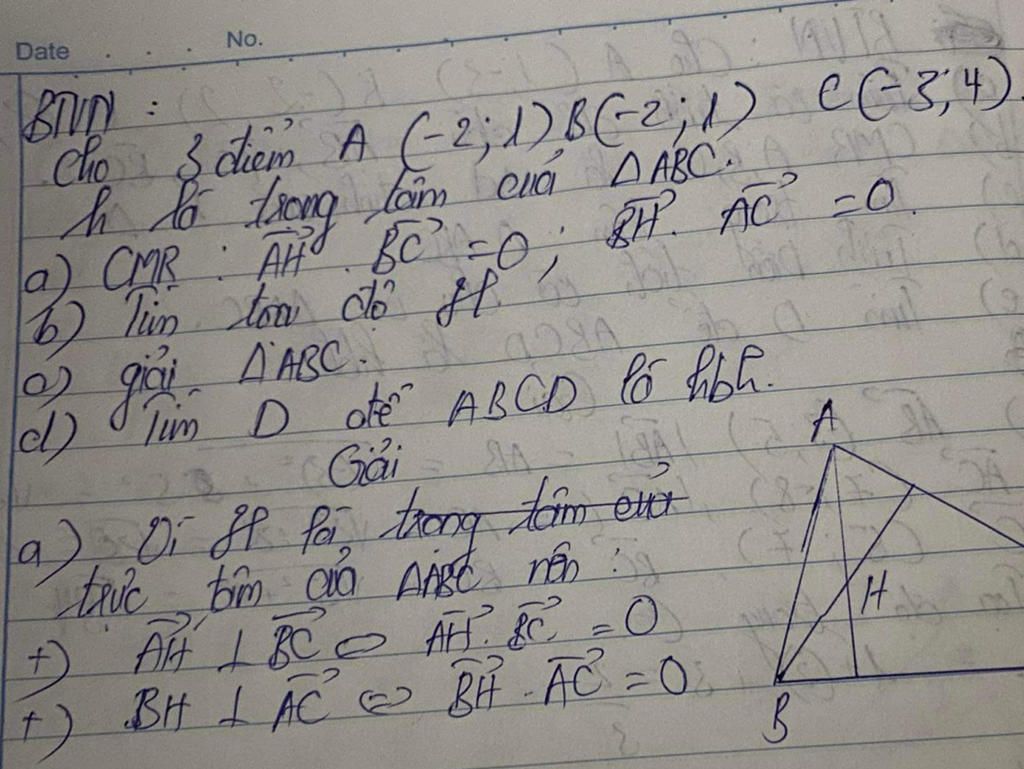 Date No.
BTVN :
Cho 3 điểm A (-2;1) B(-2;1) C(-3;4).
H là trọng tâm của ΔABC.
a) CMR : AH . BC = 0 ; BH . AC = 0.
b) Tìm tọa độ H
c) giải ΔABC.
d) Tìm D để ABCD là hbh.
Giải
a) Vì H là trọng tâm của
trực tâm của ΔABC nên :
+) AH ⊥ BC ⇔ AH . BC = 0
+) BH ⊥ AC ⇔ BH . AC = 0
A
H
B